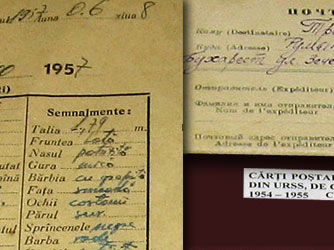 1957 luna 06 ziua 8
1957
Semnalmente:
Talia 1,79 m.
Fruntea lată
Nasul potrivit
Gura mică
Bărbia cu gropiță
Fața smeadă
Ochii castanii
Părul
Sprîncenele negre
Barba rade
ПОЧТ
Кому (Destinataire)
Куда (Adresse)
Бухарест ул.
Отправитель (Expéditeur)
Фамилия и имя отправит
Nom de l'expéditeur
Почтовый адрес отправит
Adresse de l'expéditeur
CĂRȚI POȘTAL
DIN URSS, DE
1954 – 1955